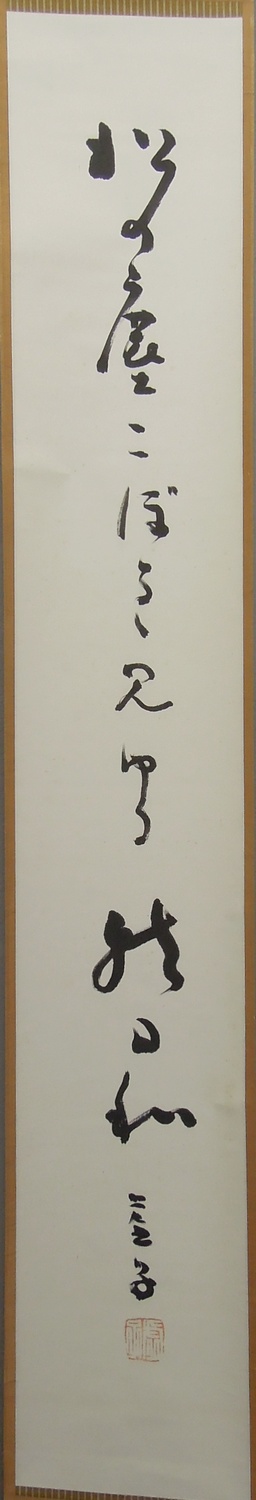 松の塵こぼるゝ見ゆる秋日和 虚子